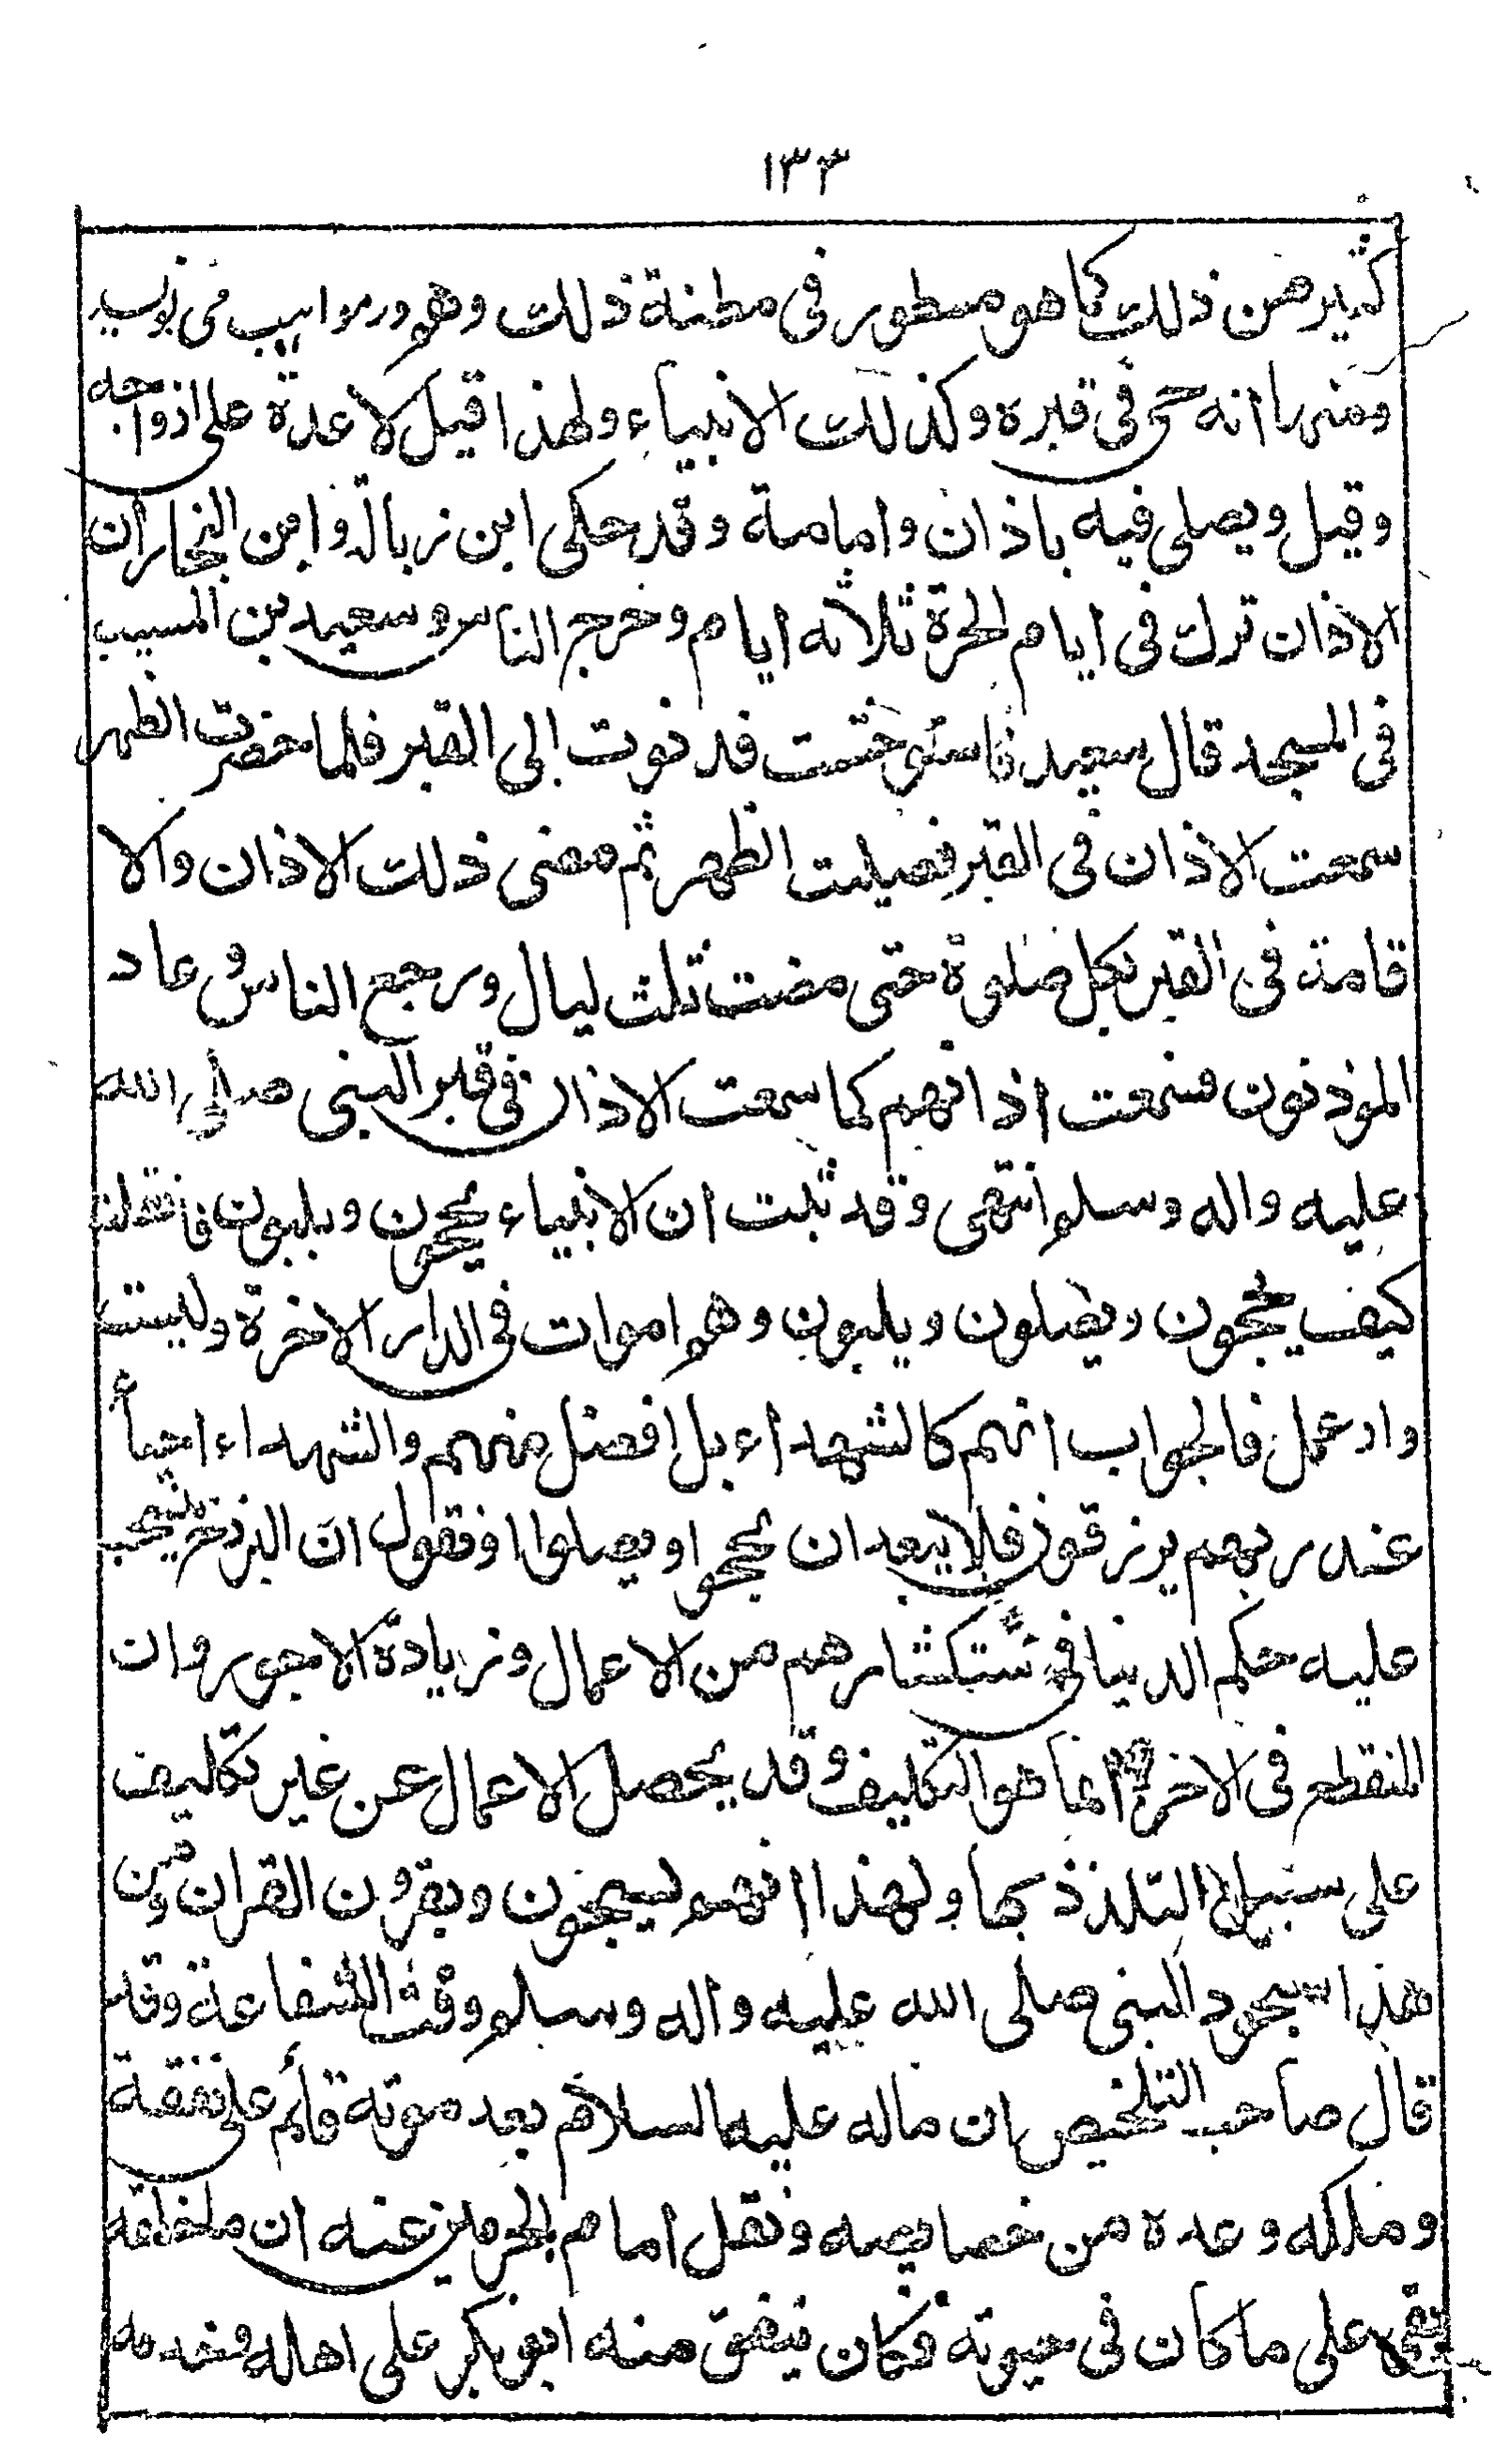 ١٣٣
كثير من ذلك كما هو مسطور فى مظنة ذلك وهو در مواهب مى نويسد
ومنها انه حى فى قبره وكذلك الانبياء ولهذا قيل لا عدة على ازواجه
وقيل ويصلى فيه باذان وامامة وقد حكى ابن زبالة وابن النجار ان
الاذان ترك فى ايام الحرة ثلاثه ايام وخرج الناس وسعيد بن المسيب
فى المسجد قال سعيد فدنوت الى القبر فلما حضرت الظهر
سمعت الاذان فى القبر فصليت الظهر ثم مضى ذلك الاذان والا
قامة فى القبر لكل صلوة حتى مضت ثلث ليال ورجع الناس وعاد
الموذنون فسمعت اذانهم كما سمعت الاذان فى قبر النبى صلى الله
عليه واله وسلم انتهى وقد ثبت ان الانبياء يحجون ويلبون فان قلت
كيف يحجون ويصلون ويلبون وهم اموات فى الدار الاخرة وليست
دار عمل فالجواب انهم كالشهداء بل افضل منهم والشهداء احياء
عند ربهم يرزقون فلا يبعد ان يحجوا ويصلوا او نقول ان البرزخ ينسحب
عليه حكم الدنيا فى استكثارهم من الاعمال وزيادة الاجور وان
المنقطع فى الاخرة انما هو التكليف وقد يحصل الاعمال عن غير تكليف
على سبيل التلذذ بها ولهذا انهم يسبحون ويقرون القران ومن
هذا سجود النبى صلى الله عليه واله وسلم وقت الشفاعة وقد
قال صاحب التلخيص ان ماله عليه السلام بعد موته قائم على نفقة
وملكه وعده من خصايصه ونقل امام الحرمين عنه ان ما خلفه
بقى على ما كان فى حيوته فكان ينفق منه ابو بكر على اهله وخدمه